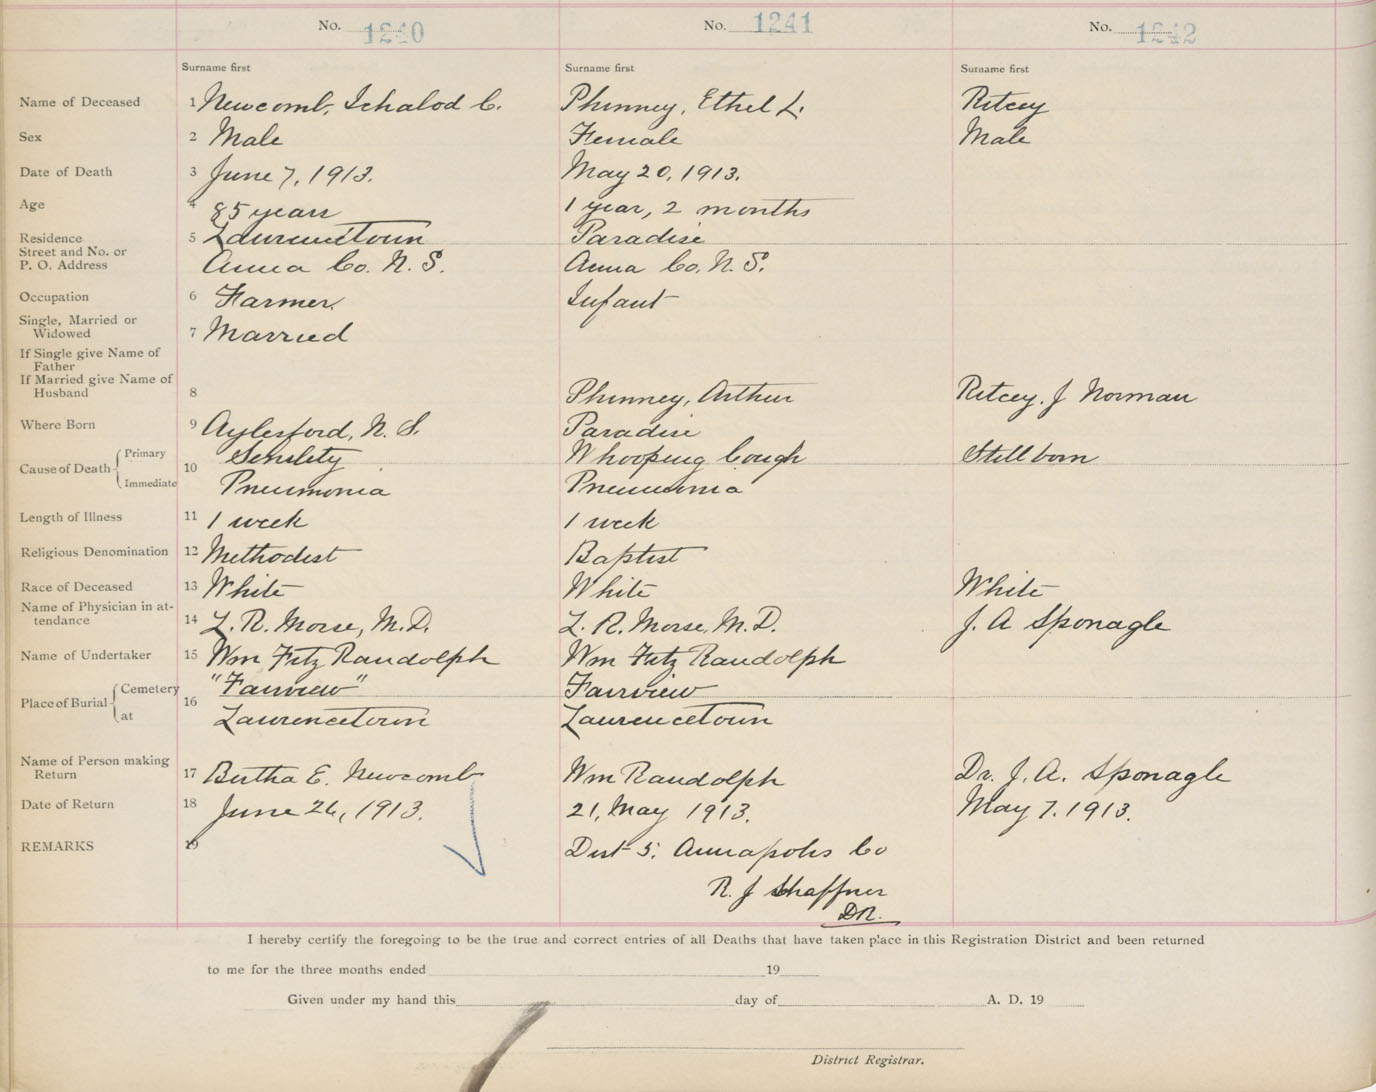 No. 1240 No. 1241 No. 1242
Surname first Surname first Surname first
Name of Deceased 1 Newcomb, Ichalod C. Phinney, Ethel L. Ritcey
Sex 2 Male Female Male
Date of Death 3 June 7, 1913. May 20, 1913.
Age 4 85 years 1 year, 2 months
Residence 5 Laurencetown Paradise
Street and No. or
P. O. Address Anna Co. N. S. Anna Co. N. S.
Occupation 6 Farmer Infant
Single, Married or
Widowed 7 Married
If Single give Name of
Father
If Married give Name of
Husband 8 Phinney, Arthur Ritcey, J Norman
Where Born 9 Aylesford, N. S. Paradise
Cause of Death Primary 10 Senility Whooping Cough Stillborn
Immediate Pneumonia Pneumonia
Length of Illness 11 1 week 1 week
Religious Denomination 12 Methodist Baptist
Race of Deceased 13 White White White
Name of Physician in at-
tendance 14 L. R. Morse, M.D. L. R. Morse, M.D. J. A Sponagle
Name of Undertaker 15 Wm Fitz Randolph Wm Fitz Randolph
Place of Burial Cemetery 16 "Fairview" Fairview
at Lawrencetown Lawrencetown
Name of Person making
Return 17 Bertha E. Newcomb Wm Randolph Dr. J. A. Sponagle
Date of Return 18 June 26, 1913. 21, May 1913. May 7. 1913.
REMARKS 19 Dist 5. Annapolis Co
R. J Shaffner
DR.
I hereby certify the foregoing to be the true and correct entries of all Deaths that have taken place in this Registration District and been returned
to me for the three months ended 19
Given under my hand this day of A. D. 19
District Registrar.